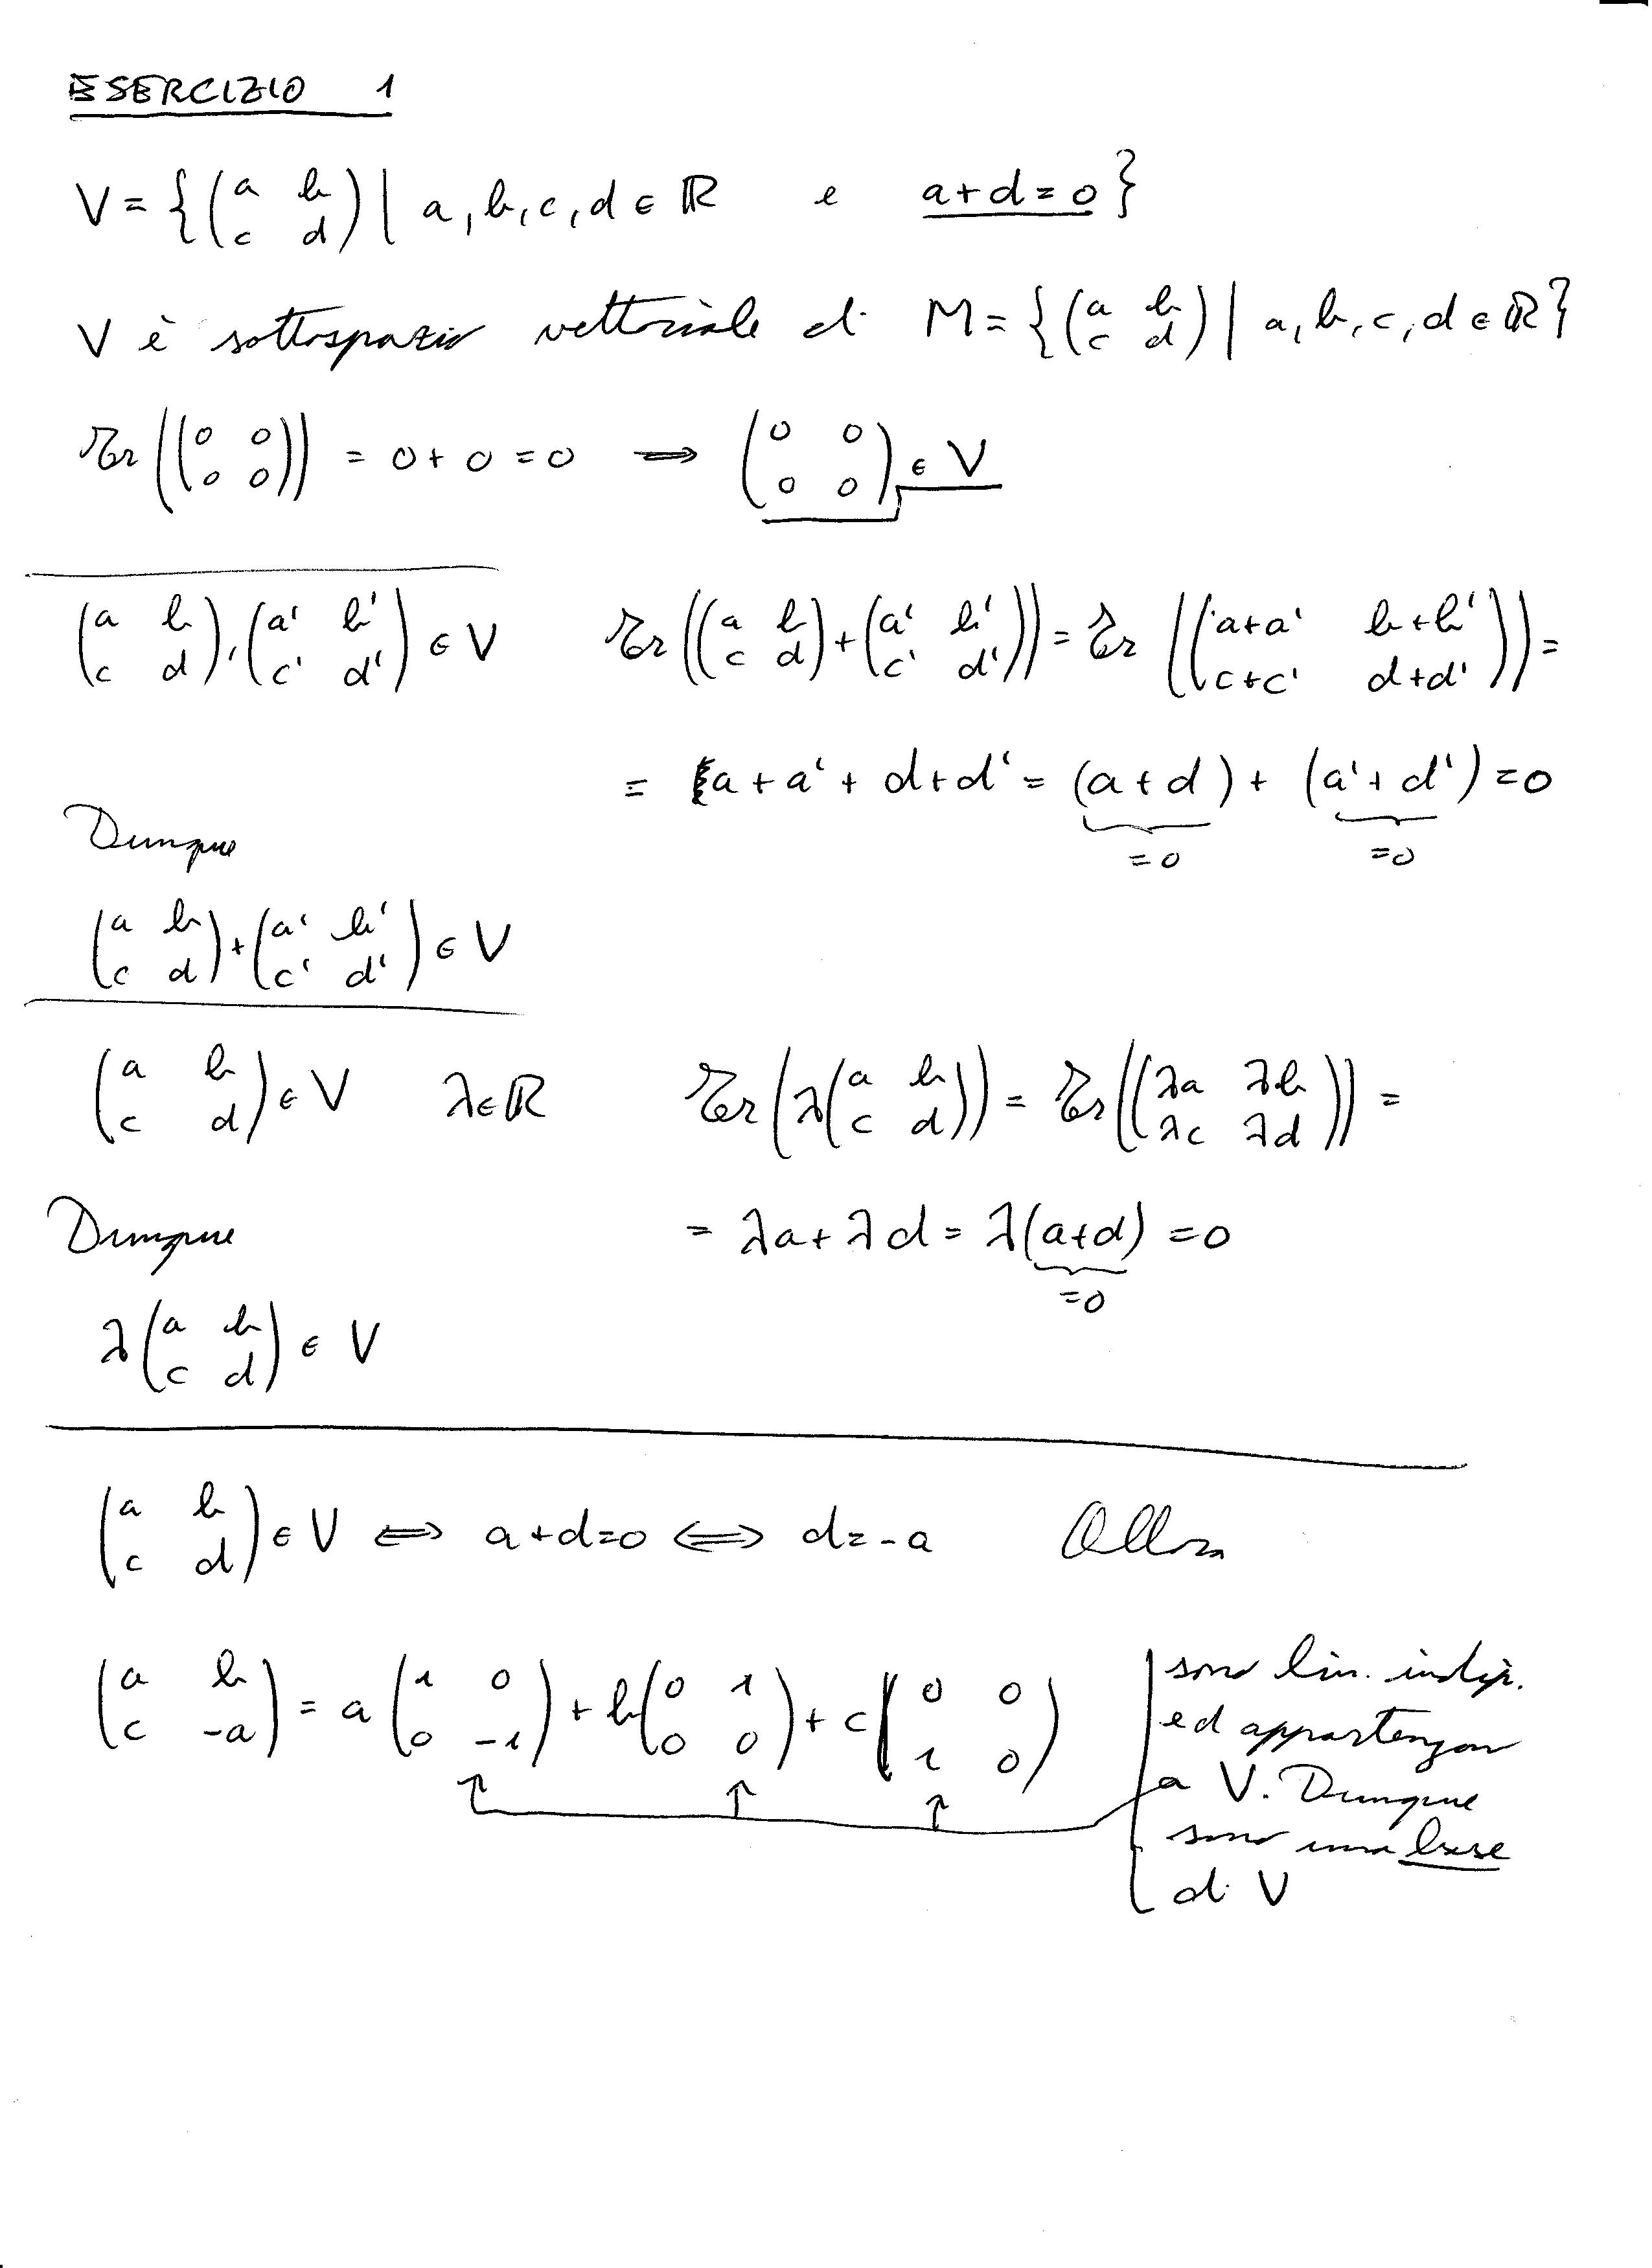 ESERCIZIO 1
V = { ( a b ; c d ) | a, b, c, d ∈ ℝ e a+d=0 }
V è sottospazio vettoriale di M = { ( a b ; c d ) | a, b, c, d ∈ ℝ }
Tr (( 0 0 ; 0 0 )) = 0 + 0 = 0 ⟹ ( 0 0 ; 0 0 ) ∈ V
( a b ; c d ), ( a' b' ; c' d' ) ∈ V Tr (( a b ; c d ) + ( a' b' ; c' d' )) = Tr (( a+a' b+b' ; c+c' d+d' )) =
= a + a' + d + d' = (a + d) + (a' + d') = 0
=0 =0
Dunque
( a b ; c d ) + ( a' b' ; c' d' ) ∈ V
( a b ; c d ) ∈ V λ ∈ ℝ Tr ( λ ( a b ; c d )) = Tr (( λa λb ; λc λd )) =
Dunque = λa + λd = λ(a+d) = 0
=0
λ ( a b ; c d ) ∈ V
( a b ; c d ) ∈ V ⟺ a+d=0 ⟺ d=-a Allora
( a b ; c -a ) = a ( 1 0 ; 0 -1 ) + b ( 0 1 ; 0 0 ) + c ( 0 0 ; 1 0 )
sono lin. indip.
ed appartengon
a V. Dunque
sono una base
di V